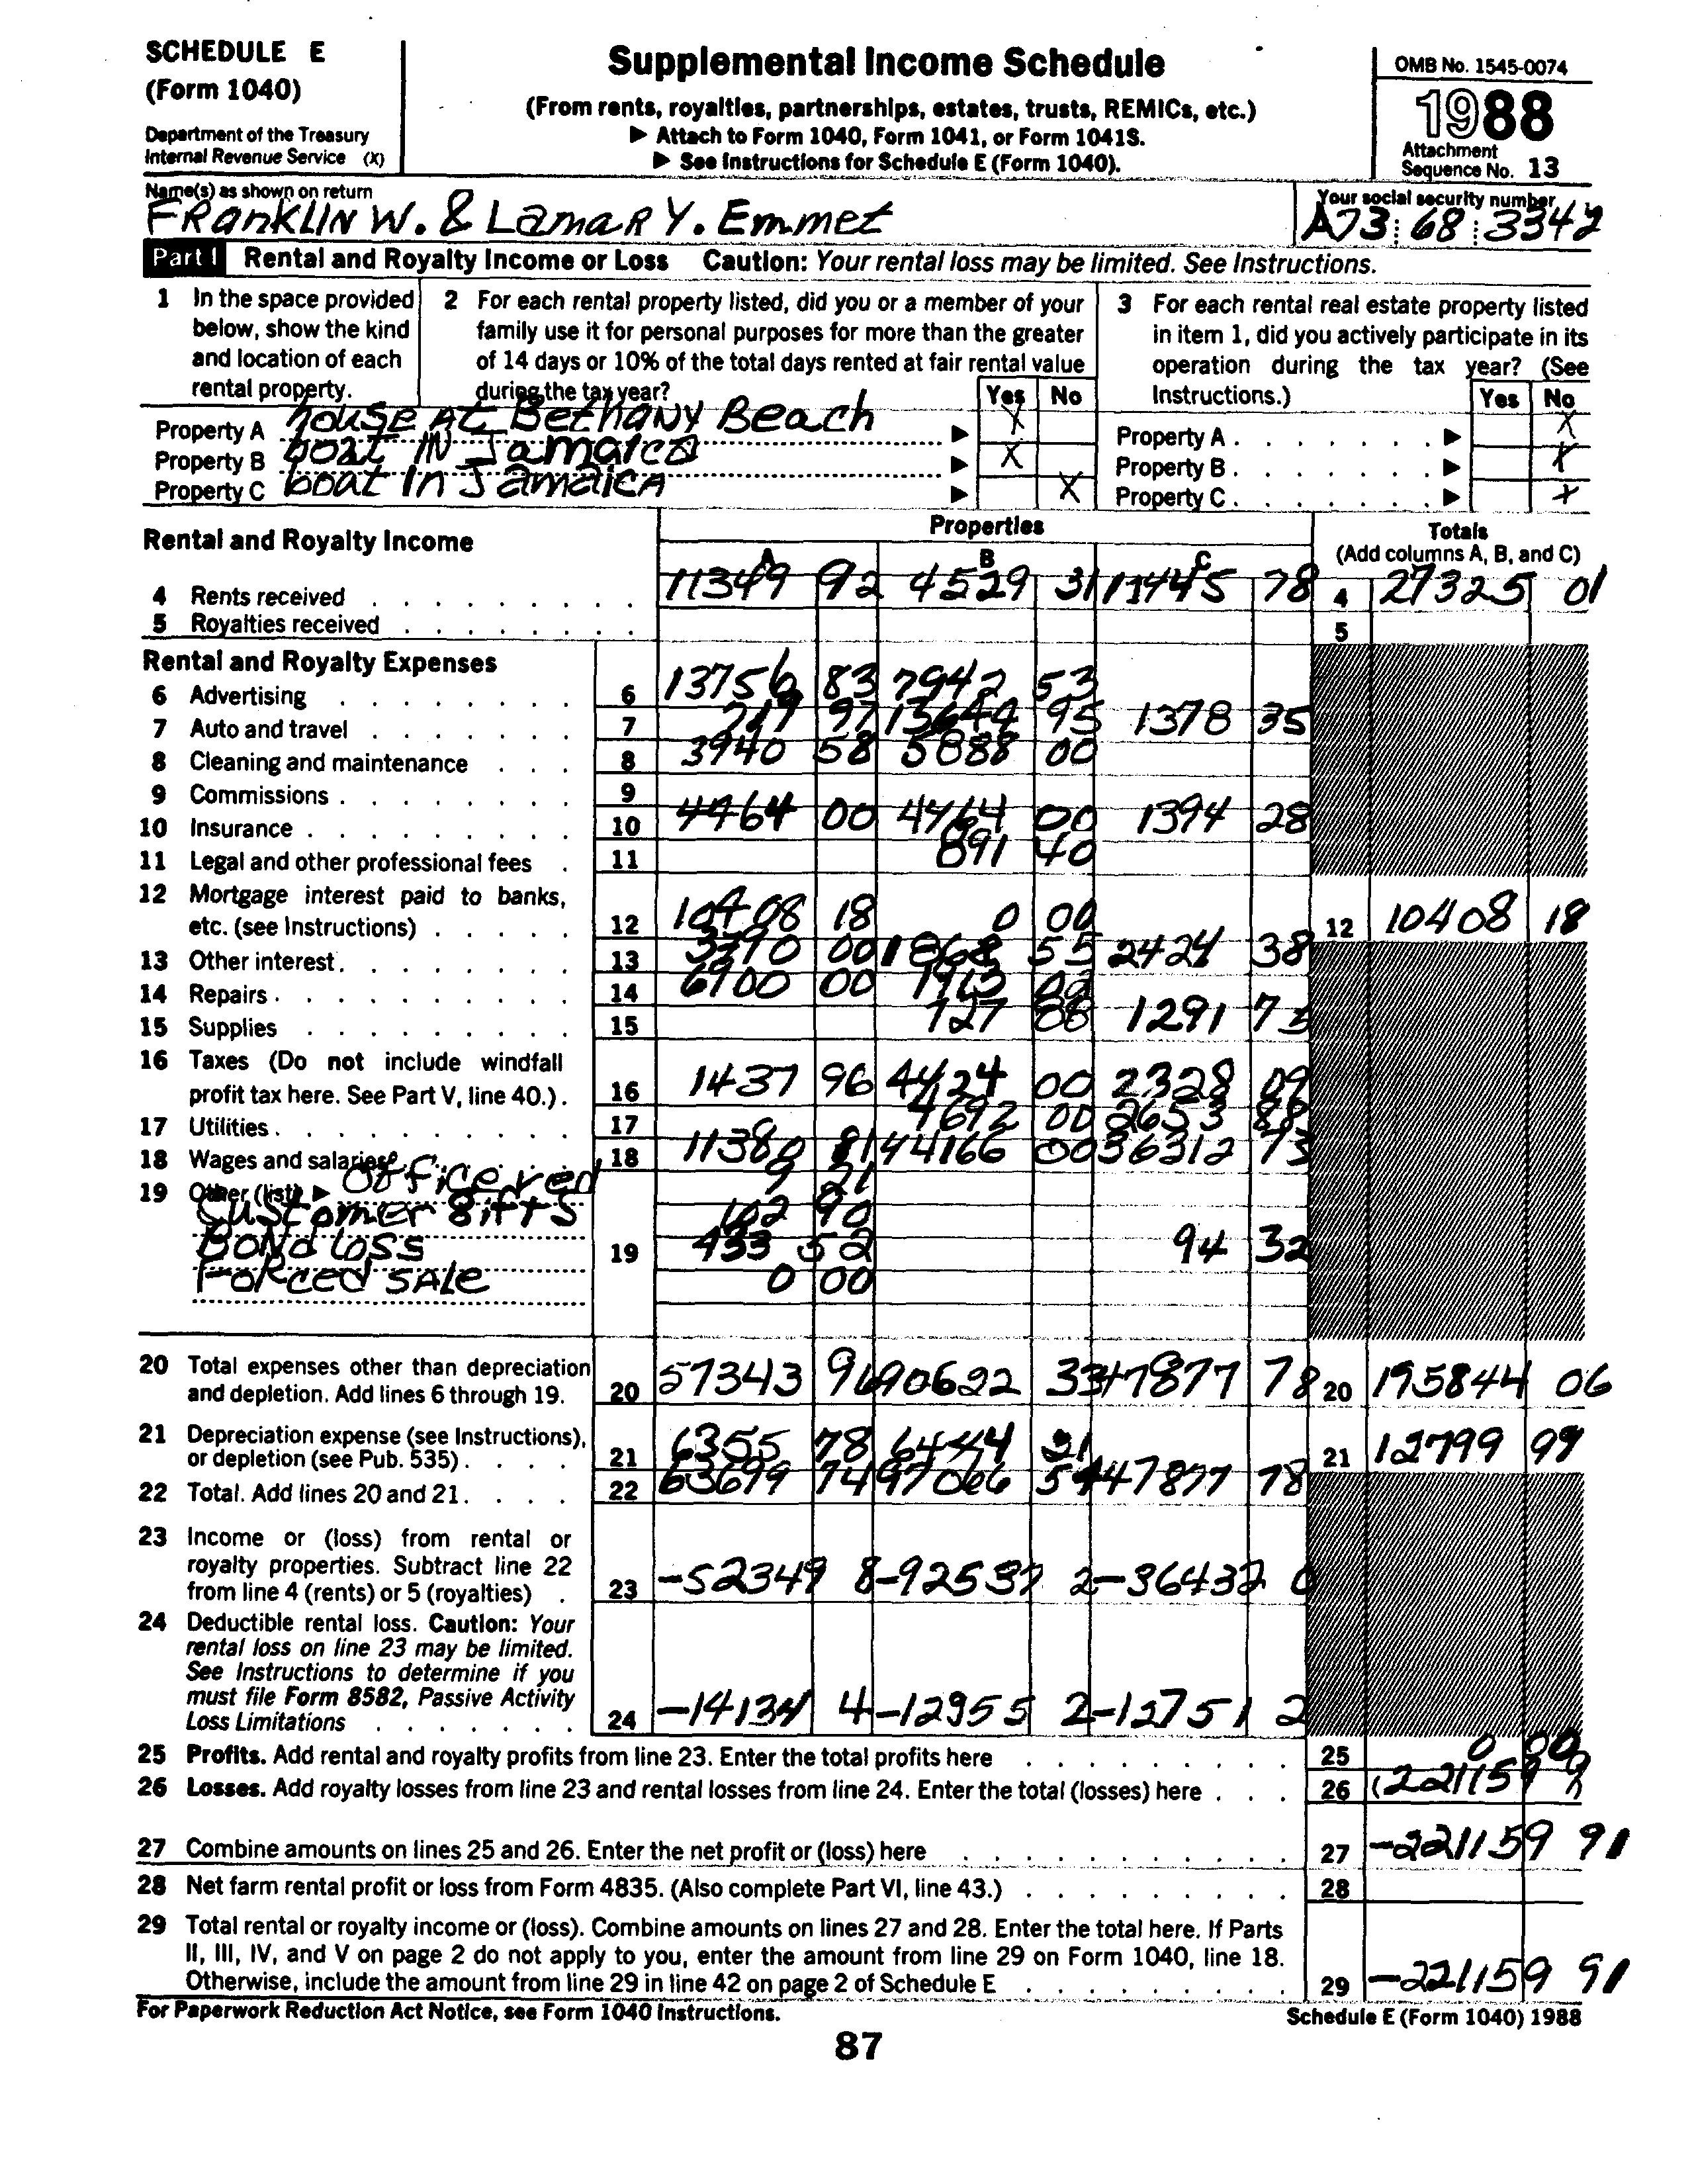 SCHEDULE E
(Form 1040)
Department of the Treasury
Internal Revenue Service (X)
Supplemental Income Schedule
(From rents, royalties, partnerships, estates, trusts, REMICs, etc.)
▶ Attach to Form 1040, Form 1041, or Form 1041S.
▶ See Instructions for Schedule E (Form 1040).
OMB No. 1545-0074
1988
Attachment
Sequence No. 13
Name(s) as shown on return
FRanKLIN W. & LamaR Y. Emmet
Your social security number
A73 68 3342
Part I Rental and Royalty Income or Loss Caution: Your rental loss may be limited. See Instructions.
1 In the space provided below, show the kind and location of each rental property.
2 For each rental property listed, did you or a member of your family use it for personal purposes for more than the greater of 14 days or 10% of the total days rented at fair rental value during the tax year?
Yes No
3 For each rental real estate property listed in item 1, did you actively participate in its operation during the tax year? (See Instructions.)
Yes No
Property A house At Bethany Beach ▶ X
Property A ▶ X
Property B boat IN Jamaica ▶ X
Property B ▶ X
Property C boat In Jamaica ▶ X
Property C ▶ X
Rental and Royalty Income
Properties
A B C
Totals
(Add columns A, B, and C)
4 Rents received 11349 92 4529 31 11445 78 4 27325 01
5 Royalties received 5
Rental and Royalty Expenses
6 Advertising 6 13756 83 7942 53
7 Auto and travel 7 97 13644 95 1378 35
8 Cleaning and maintenance 8 3940 58 5888 00
9 Commissions 9
10 Insurance 10 4464 00 4464 00 1394 28
11 Legal and other professional fees 11 891 40
12 Mortgage interest paid to banks, etc. (see Instructions) 12 10408 18 0 00 12 10408 18
13 Other interest 13 00 1868 55 2424 38
14 Repairs 14 6900 00 1913 02
15 Supplies 15 727 08 1291 73
16 Taxes (Do not include windfall profit tax here. See Part V, line 40.) 16 1437 96 4424 00 2328 09
17 Utilities 17 4692 00 2653
18 Wages and salaries 18 11380 81 44166 00 36312 73
19 Other (list) ▶ Office red 9 21
Customer gifts 90
Bond Loss 19 433 52 94 32
Forced SALe 0 00
20 Total expenses other than depreciation and depletion. Add lines 6 through 19. 20 57343 96 90622 33 47877 78 20 195844 06
21 Depreciation expense (see Instructions), or depletion (see Pub. 535) 21 6355 78 6444 21 21 12799 99
22 Total. Add lines 20 and 21. 22 63699 74 97066 54 47877 78
23 Income or (loss) from rental or royalty properties. Subtract line 22 from line 4 (rents) or 5 (royalties) 23 -52349 8 -92537 2 -36432 0
24 Deductible rental loss. Caution: Your rental loss on line 23 may be limited. See Instructions to determine if you must file Form 8582, Passive Activity Loss Limitations 24 -14134 4 -12955 2 -12751 2
25 Profits. Add rental and royalty profits from line 23. Enter the total profits here 25 0 00
26 Losses. Add royalty losses from line 23 and rental losses from line 24. Enter the total (losses) here 26 (221159 9)
27 Combine amounts on lines 25 and 26. Enter the net profit or (loss) here 27 -221159 91
28 Net farm rental profit or loss from Form 4835. (Also complete Part VI, line 43.) 28
29 Total rental or royalty income or (loss). Combine amounts on lines 27 and 28. Enter the total here. If Parts
II, III, IV, and V on page 2 do not apply to you, enter the amount from line 29 on Form 1040, line 18.
Otherwise, include the amount from line 29 in line 42 on page 2 of Schedule E 29 -221159 91
For Paperwork Reduction Act Notice, see Form 1040 Instructions.
Schedule E (Form 1040) 1988
87